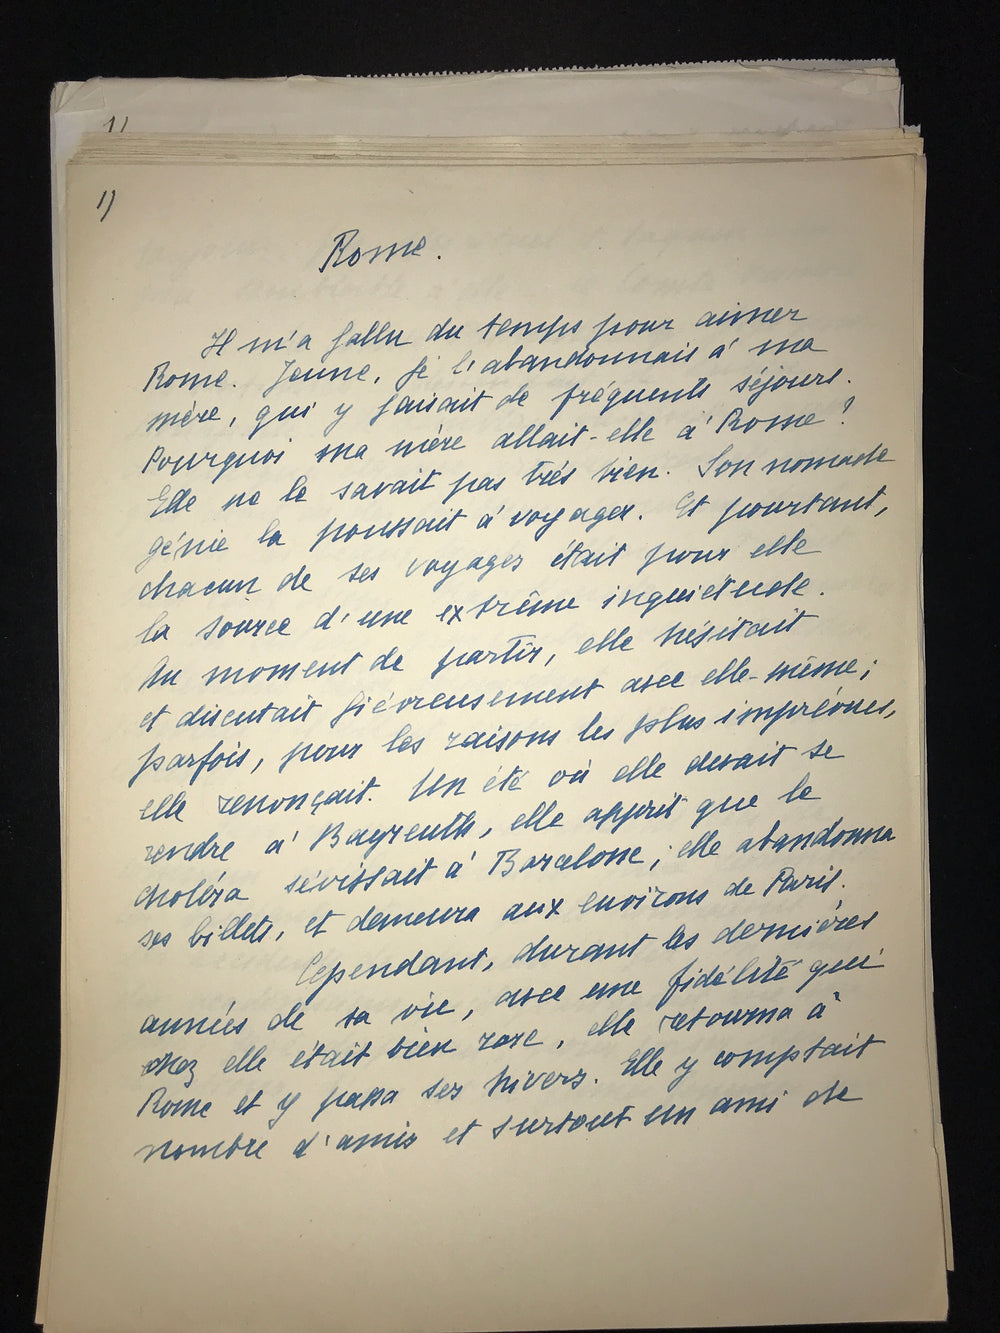 1)
1)
Rome.
Il m'a fallu du temps pour aimer
Rome. Jeune, je l'abandonnais à ma
mère, qui y faisait de fréquents séjours.
Pourquoi ma mère allait-elle à Rome?
Elle ne le savait pas très bien. Son nomade
génie la poussait à voyager. Et pourtant,
chacun de ses voyages était pour elle
la source d'une extrême inquiétude.
Au moment de partir, elle hésitait
et discutait fiévreusement avec elle-même;
parfois, pour les raisons les plus imprévues,
elle renonçait. Un été où elle devait se
rendre à Bayreuth, elle apprit que le
choléra sévissait à Barcelone; elle abandonna
ses billets, et demeura aux environs de Paris.
Cependant, durant les dernières
années de sa vie, avec une fidélité qui
chez elle était bien rare, elle retourna à
Rome et y passa ses hivers. Elle y comptait
nombre d'amis et surtout un ami de